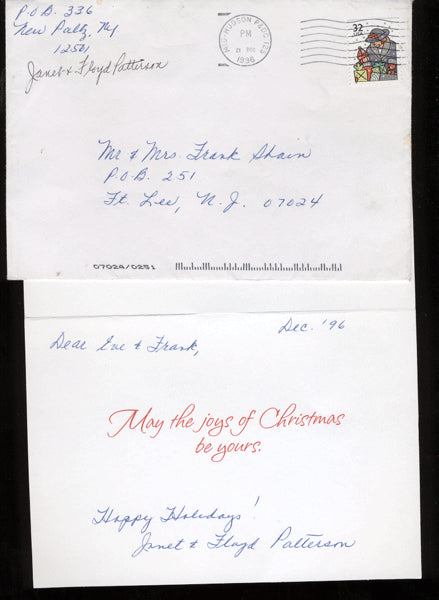 P.O.B. 336
New Paltz, NY
12561
Janet & Floyd Patterson
MID-HUDSON P&DC 125
PM
21 DEC
1996
32
USA
Mr & Mrs. Frank Shain
P.O.B. 251
Ft. Lee, N.J. 07024
07024/0251
Dec. '96
Dear Eve & Frank,
May the joys of Christmas
be yours.
Happy Holidays!
Janet & Floyd Patterson